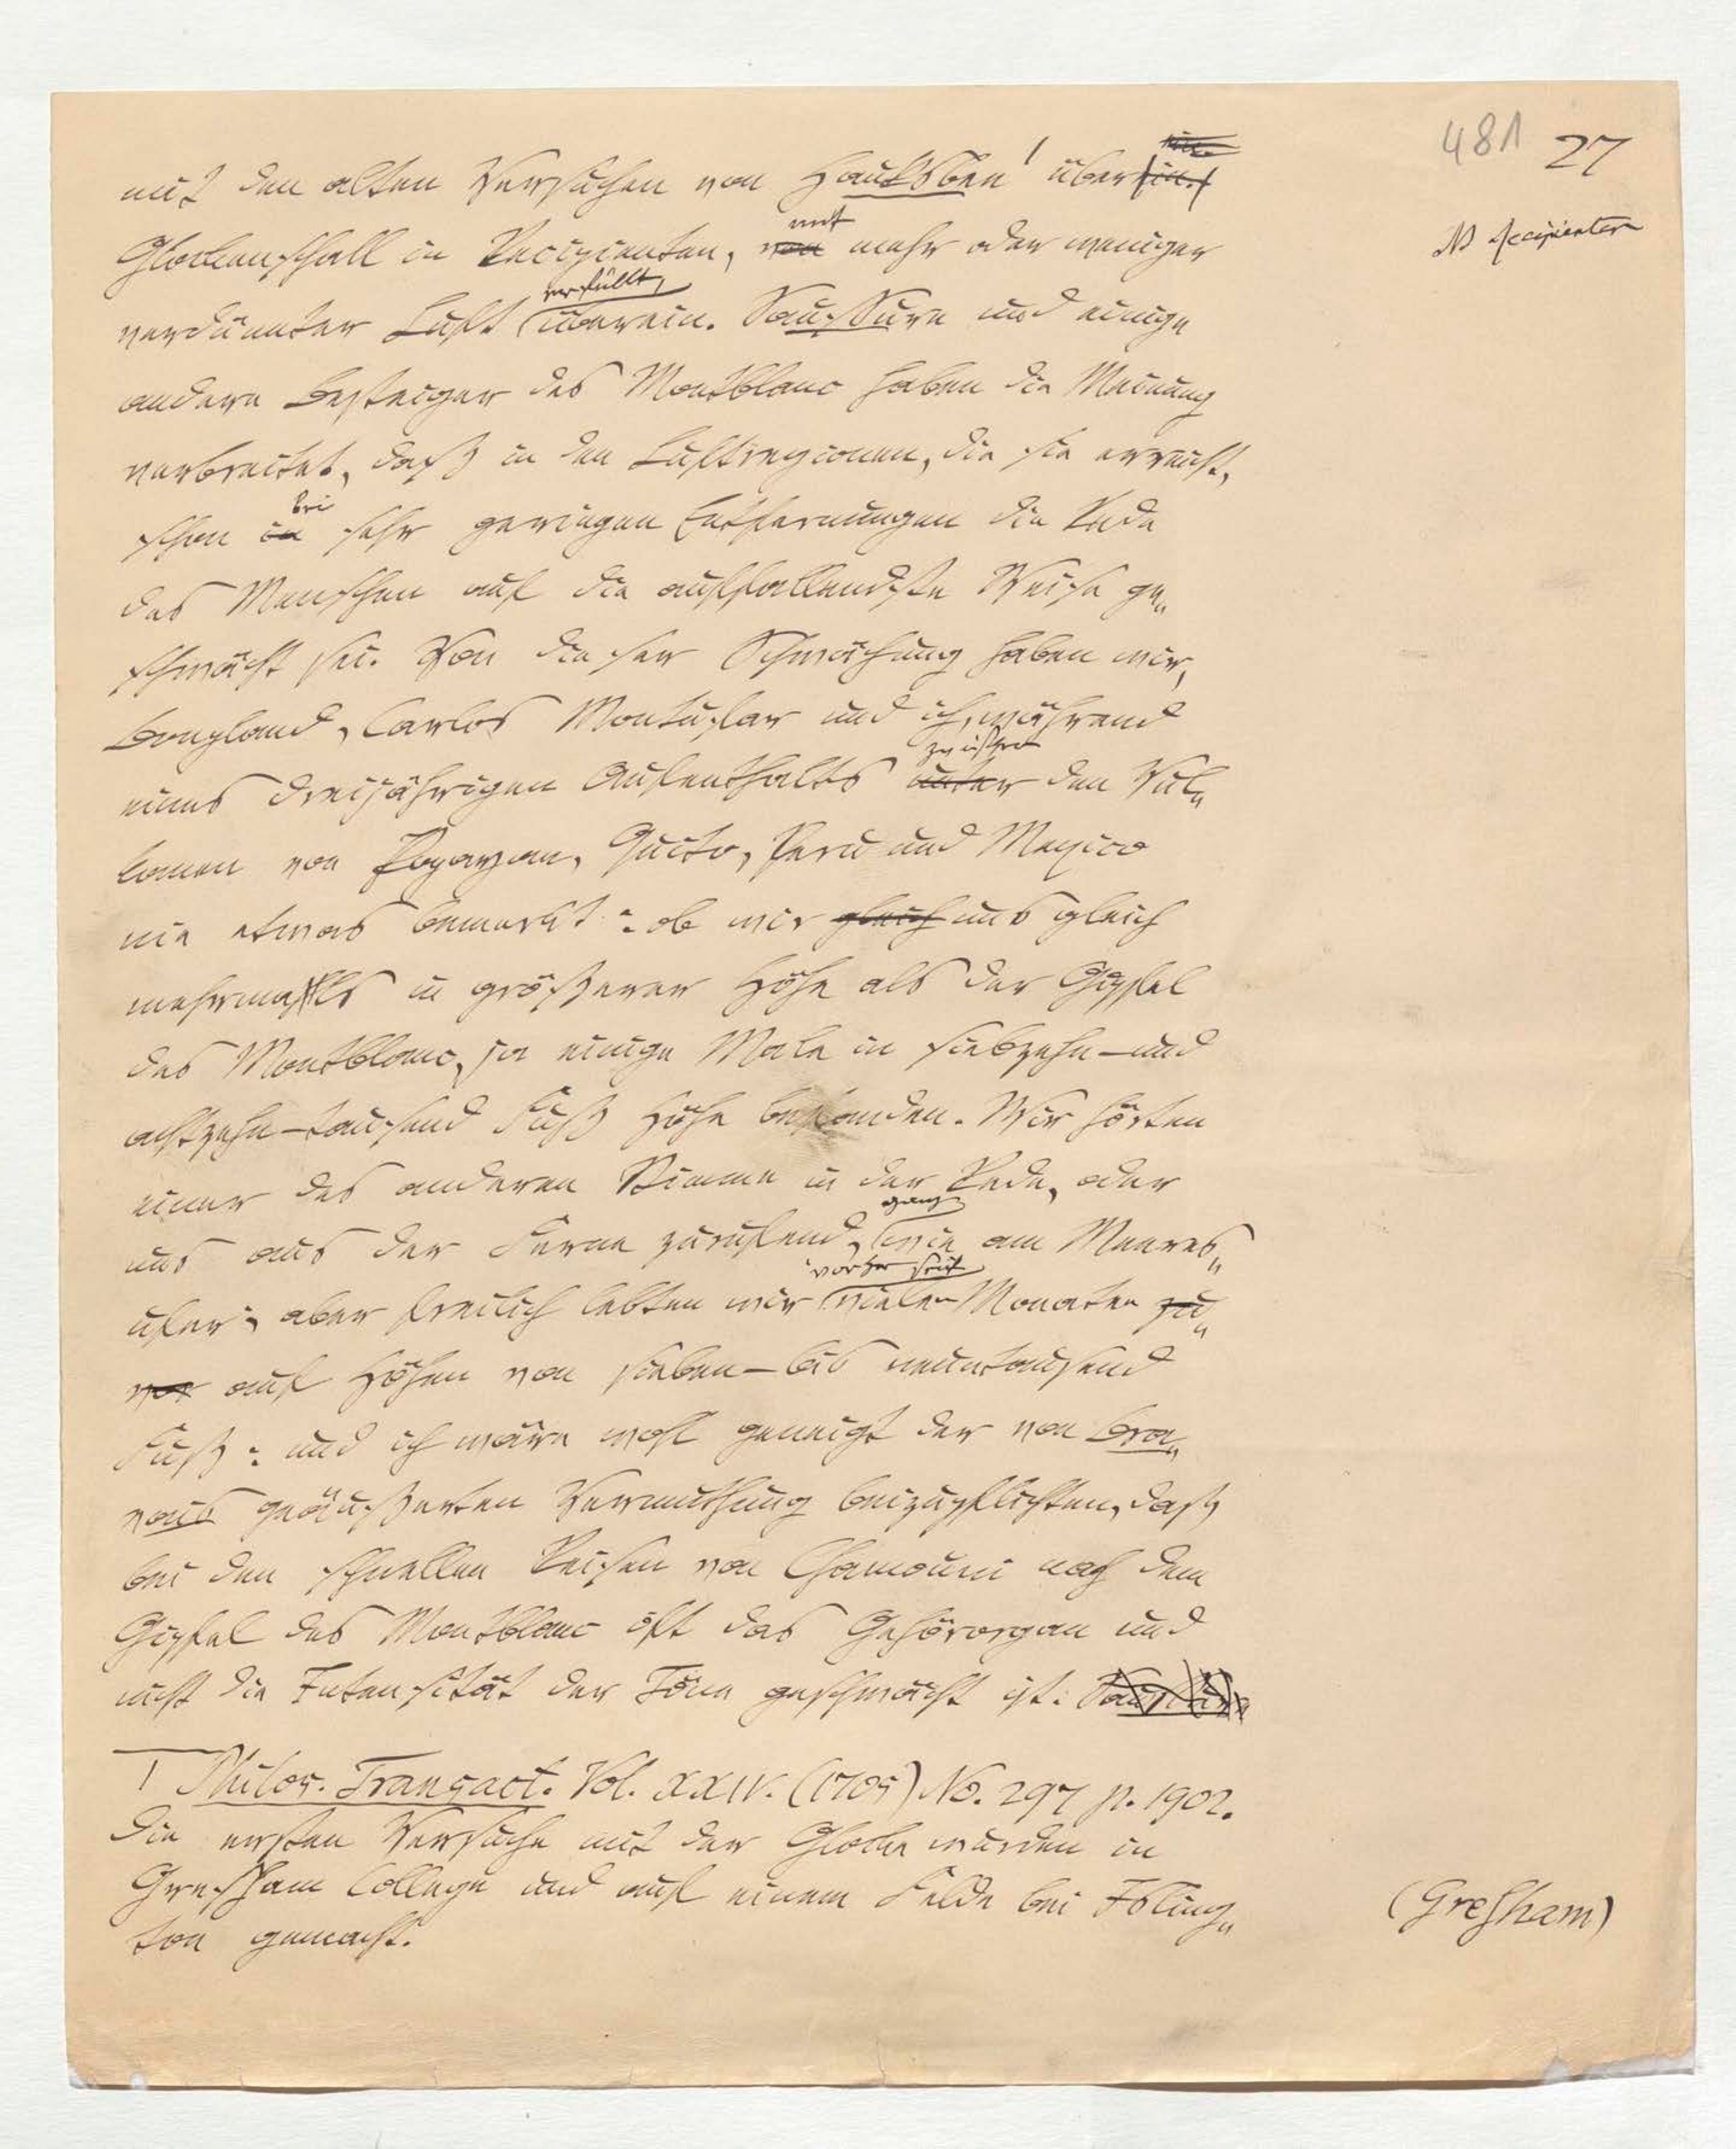 481 27
mit den alten Versuchen von Hauksbee¹ über
NB Recipienten
mit
Glockenschall in Recipienten, von mehr oder weniger
erfüllt,
verdünnter Luft überein. Saussure und einige
andere Besteiger des Montblanc haben die Meinung
verbreitet, daß in den Luftregionen, die sie erreicht,
bei
schon in sehr geringen Entfernungen die Rede
des Menschen auf die auffallendste Weise ge„
schwächt sei. Von dieser Schwächung haben wir,
Bonpland, Carlos Montufar und ich, während
zwischen
eines dreijährigen Aufenthalts unter den Vul„
kanen von Popayan, Quito, Peru und Mexico
nie etwas bemerkt: ob wir gleich uns gleich
mehrmals in größerer Höhe als der Gipfel
des Montblanc, ja einige Male in siebzehn- und
achtzehn-tausend Fuß Höhe befanden. Wir hörten
einer des anderen Stimme in der Rede, oder
ganz
uns aus der Ferne zurufend, wie am Meeres„
vorher seit
ufer; aber freilich lebten wir vielen Monaten zu„
vor auf Höhen von sieben- bis neuntausend
Fuß: und ich wäre wohl geneigt der von Bra„
vais geäußerten Vermuthung beizupflichten, daß
bei den schnellen Reisen von Chamouni nach dem
Gipfel des Montblanc oft das Gehörorgan und
nicht die Intensität der Töne geschwächt ist. Saussure
1 Philos. Transact. Vol. XXIV. (1705) No. 297 p. 1902.
Die ersten Versuche mit der Glocke wurden in
Gresham College und auf einem Felde bei Isling„
(Gresham)
ton gemacht.